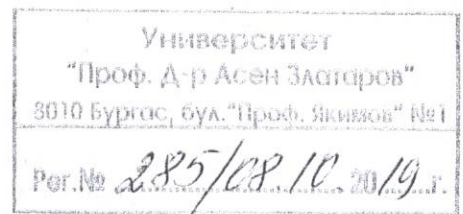 Университет
"Проф. д-р Асен Златаров"
8010 Бургас, бул."Проф. Якимов" №1
Рег.№ 285/08.10.2019 г.